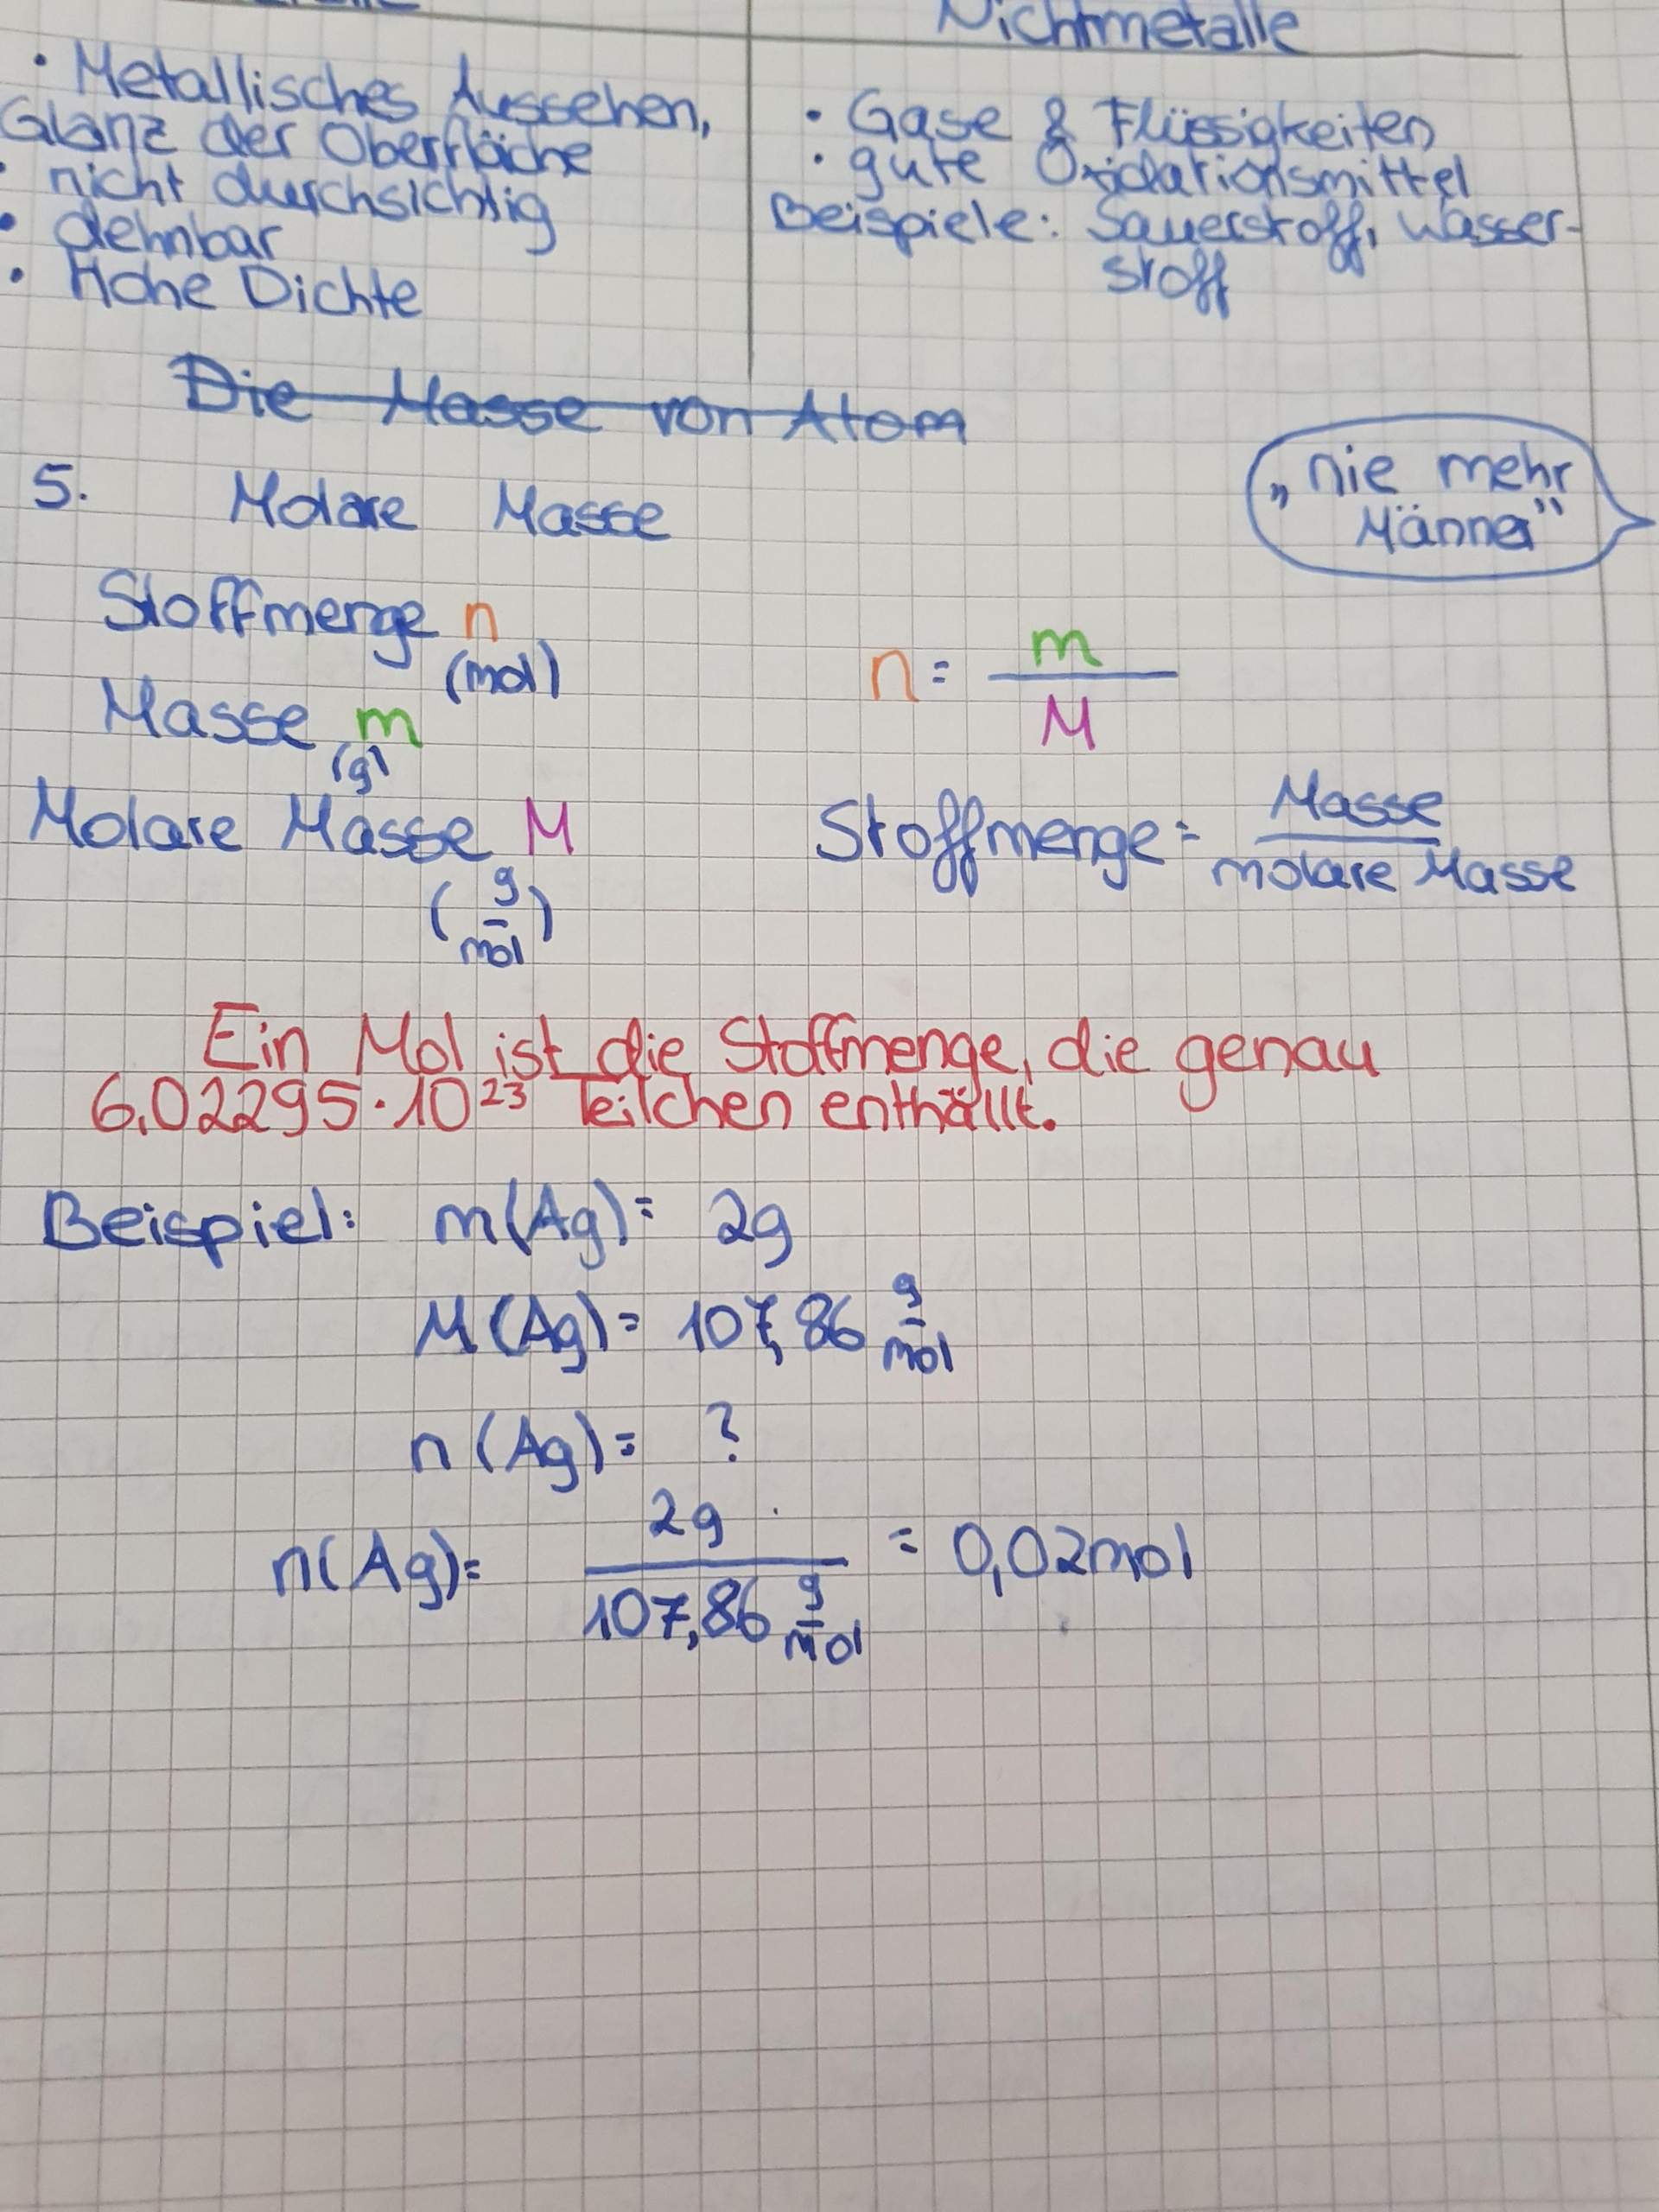 Nichtmetalle
• Metallisches Aussehen,
Glanz der Oberfläche
• nicht durchsichtig
• dehnbar
• Hohe Dichte
• Gase & Flüssigkeiten
• gute Oxidationsmittel
Beispiele: Sauerstoff, Wasser-
stoff
Die Masse von Atom
5. Molare Masse
„nie mehr
Männer“
Stoffmenge n
(mol)
Masse m
(g)
Molare Masse M
(g/mol)
n = m/M
Stoffmenge = Masse/molare Masse
Ein Mol ist die Stoffmenge, die genau
6,02295 · 10²³ Teilchen enthällt.
Beispiel: m(Ag) = 2g
M(Ag) = 107,86 g/mol
n(Ag) = ?
n(Ag) = 2g / 107,86 g/mol = 0,02mol